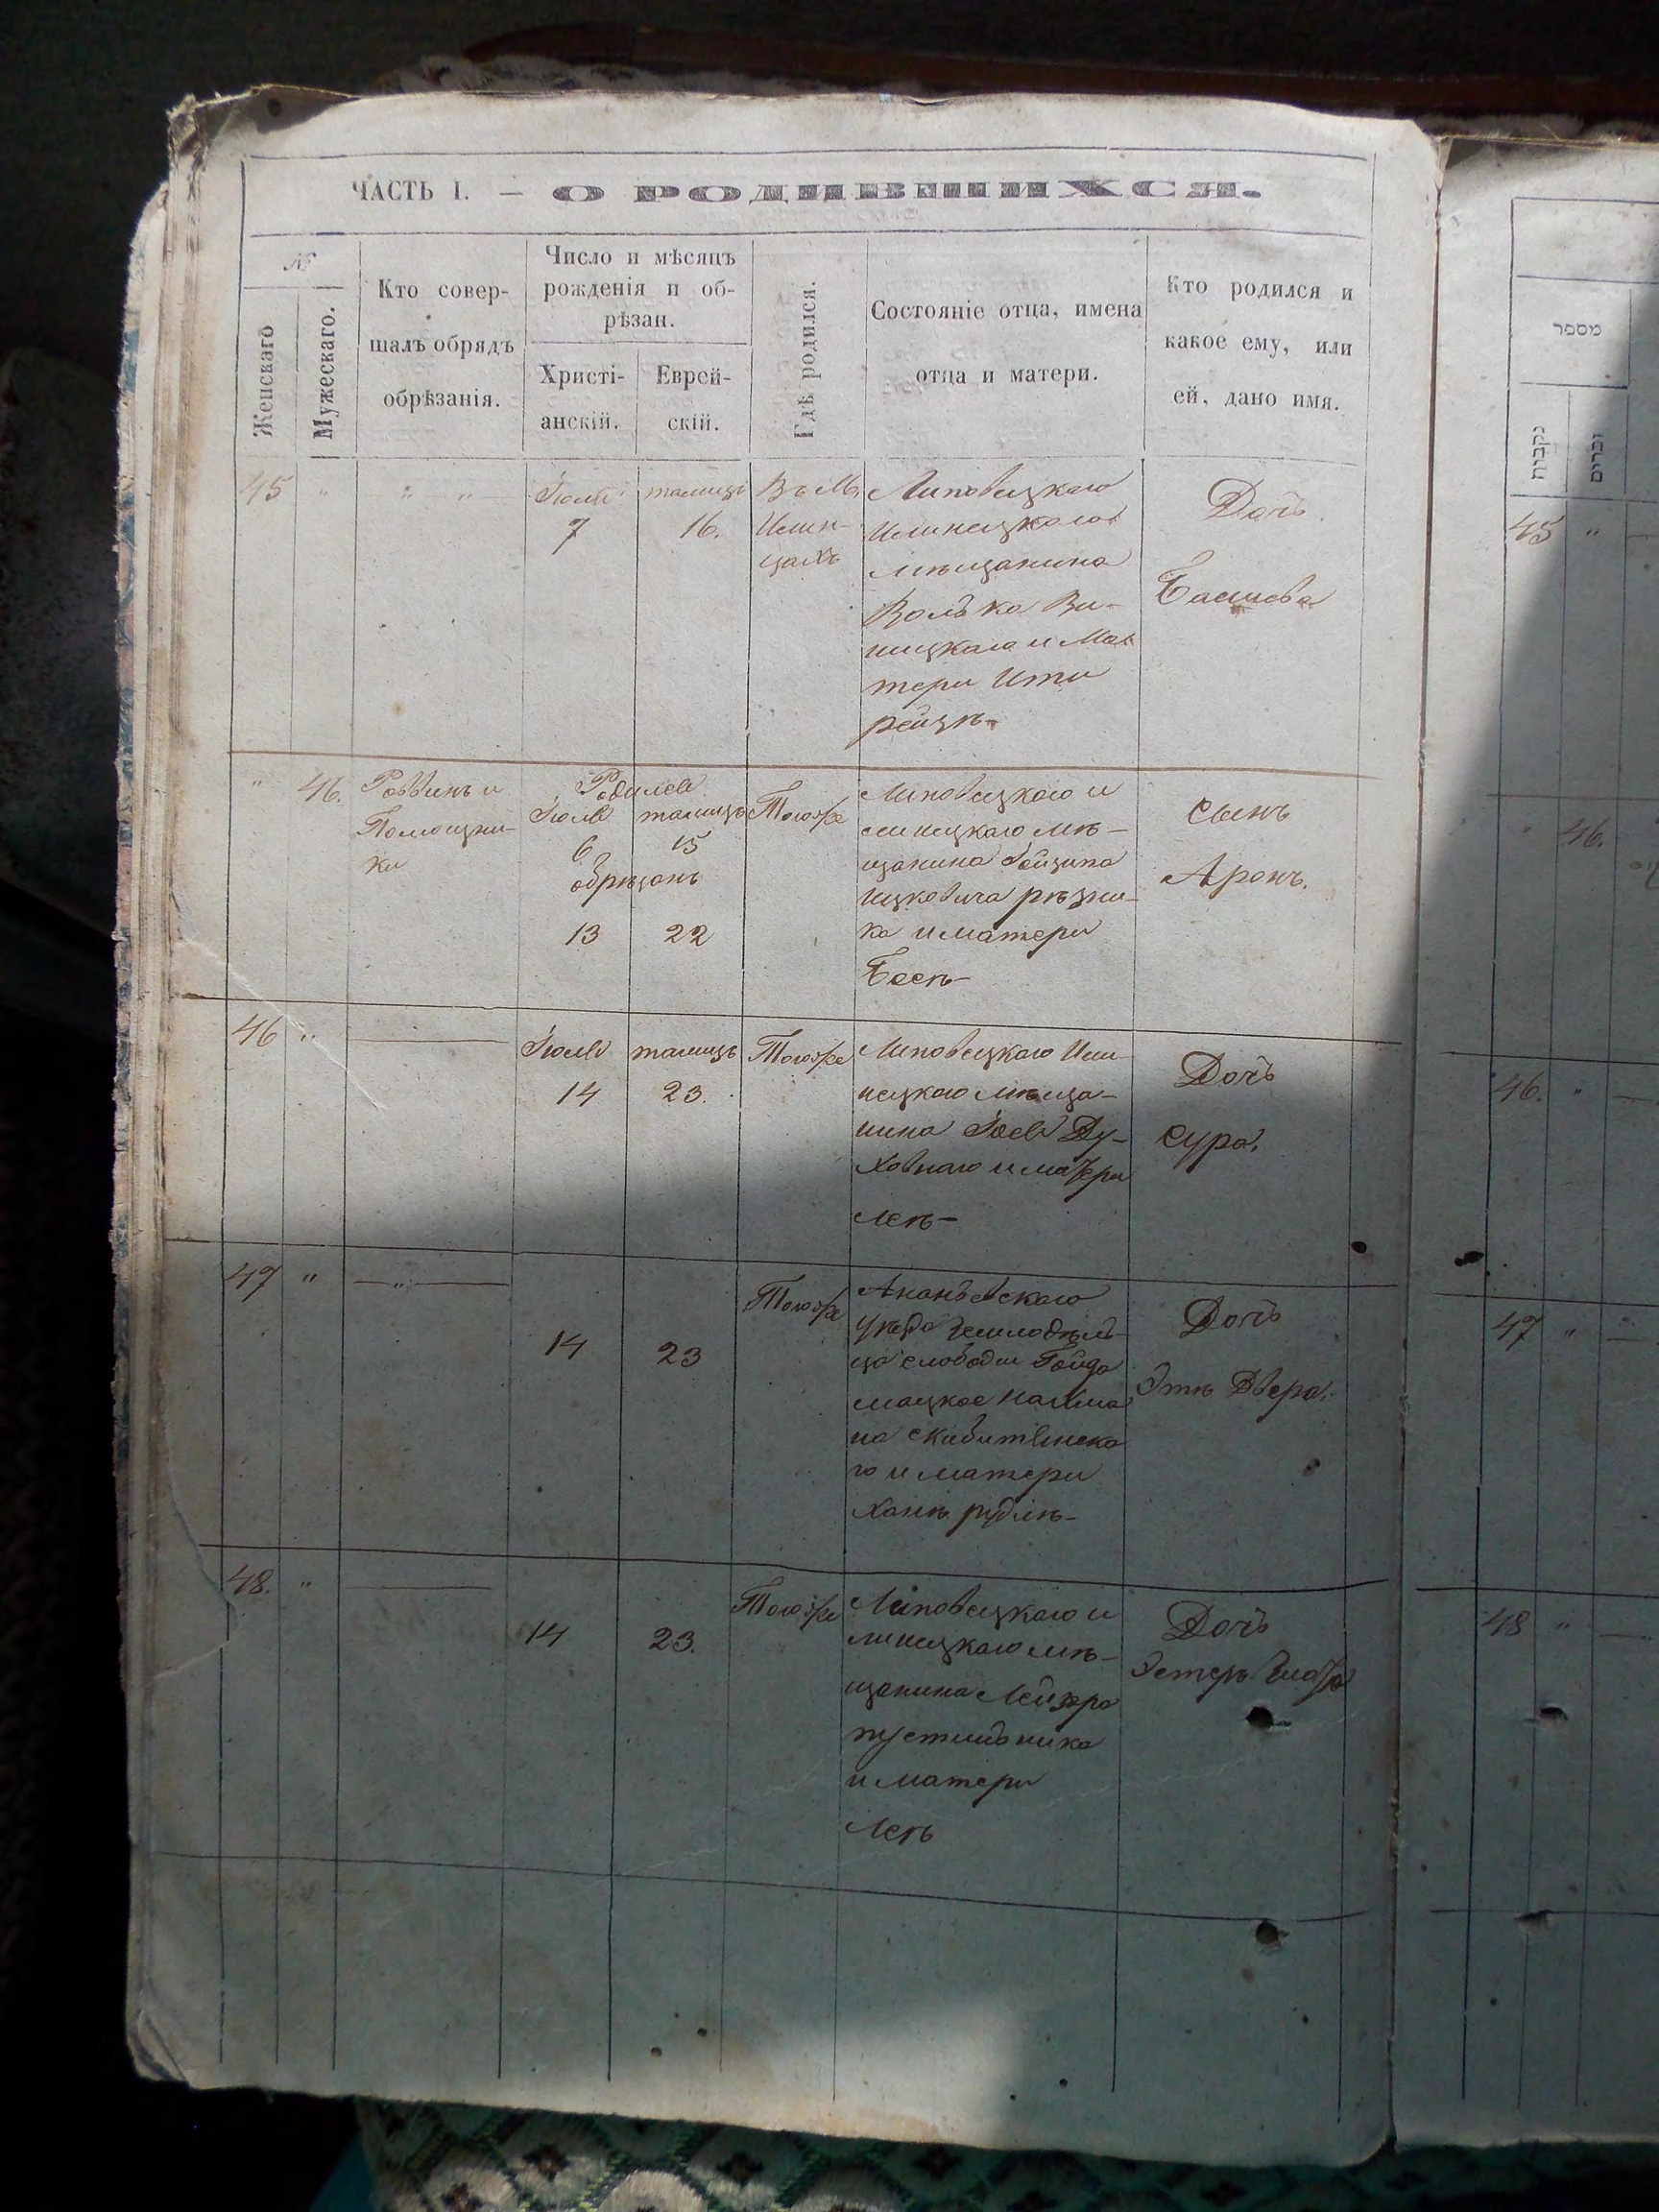 ЧАСТЬ I. — О РОДИВШИХСЯ.
№
Женскаго
Мужескаго.
Кто совер-
шалъ обрядъ
обрѣзанія.
Число и мѣсяцъ
рожденія и об-
рѣзан.
Христі-
анскій.
Еврей-
скій.
Гдѣ родился.
Состояніе отца, имена
отца и матери.
Кто родился и
какое ему, или
ей, дано имя.
45 " " "
Іюля 7
тамизъ 16.
Въ М.
Илин-
цахъ
Липовецкаго
Илинецкаго
мѣщанина
Волька Ви-
ницкаго и Ма-
тери Ити
рейзѣ-
Дочь
Басшева
" 46.
Раввинъ и
Помощни-
ки
Родился
Іюля тамизъ
6 15
обрѣзанъ
13 22
Тогоже
Липовецкаго и
линецкаго мѣ-
щанина
Ицковича рѣзни-
ка и матери
Басѣ-
сынъ
Аронъ.
46 "
Іюля тамизъ
14 23.
Тогоже
Липовецкаго Или-
нецкаго мѣща-
нина Іося Ду-
ховнаго и матери
леѣ-
Дочь
сура.
47 " — " —
14 23
Тогоже
Ананьевскаго
уѣзда земледѣль-
ца слободы Гайда
мацкое Нахма
на
го и матери
Ханѣ рудлѣ-
Дочь
Этѣ Двера.
48. "
14 23.
Тогоже
Липовецкаго и
линецкаго мѣ-
щанина Лейзера
пустильника
и матери
Леѣ
Дочь
Эстеръ
מספר
נקבות
זכרים
45 "
" 46.
46. "
47 "
48 "